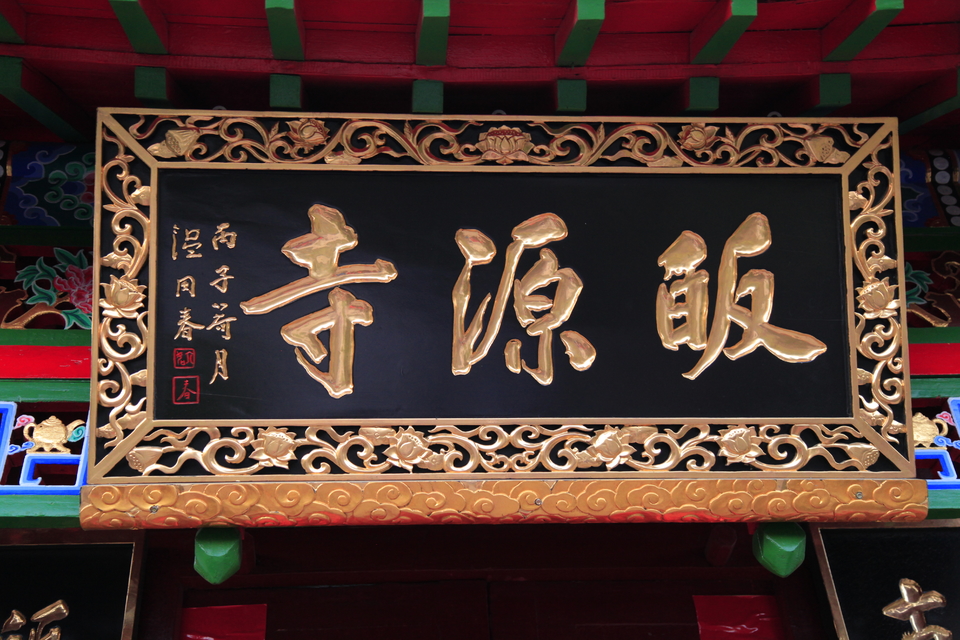 皈源寺
丙子荷月
温同春